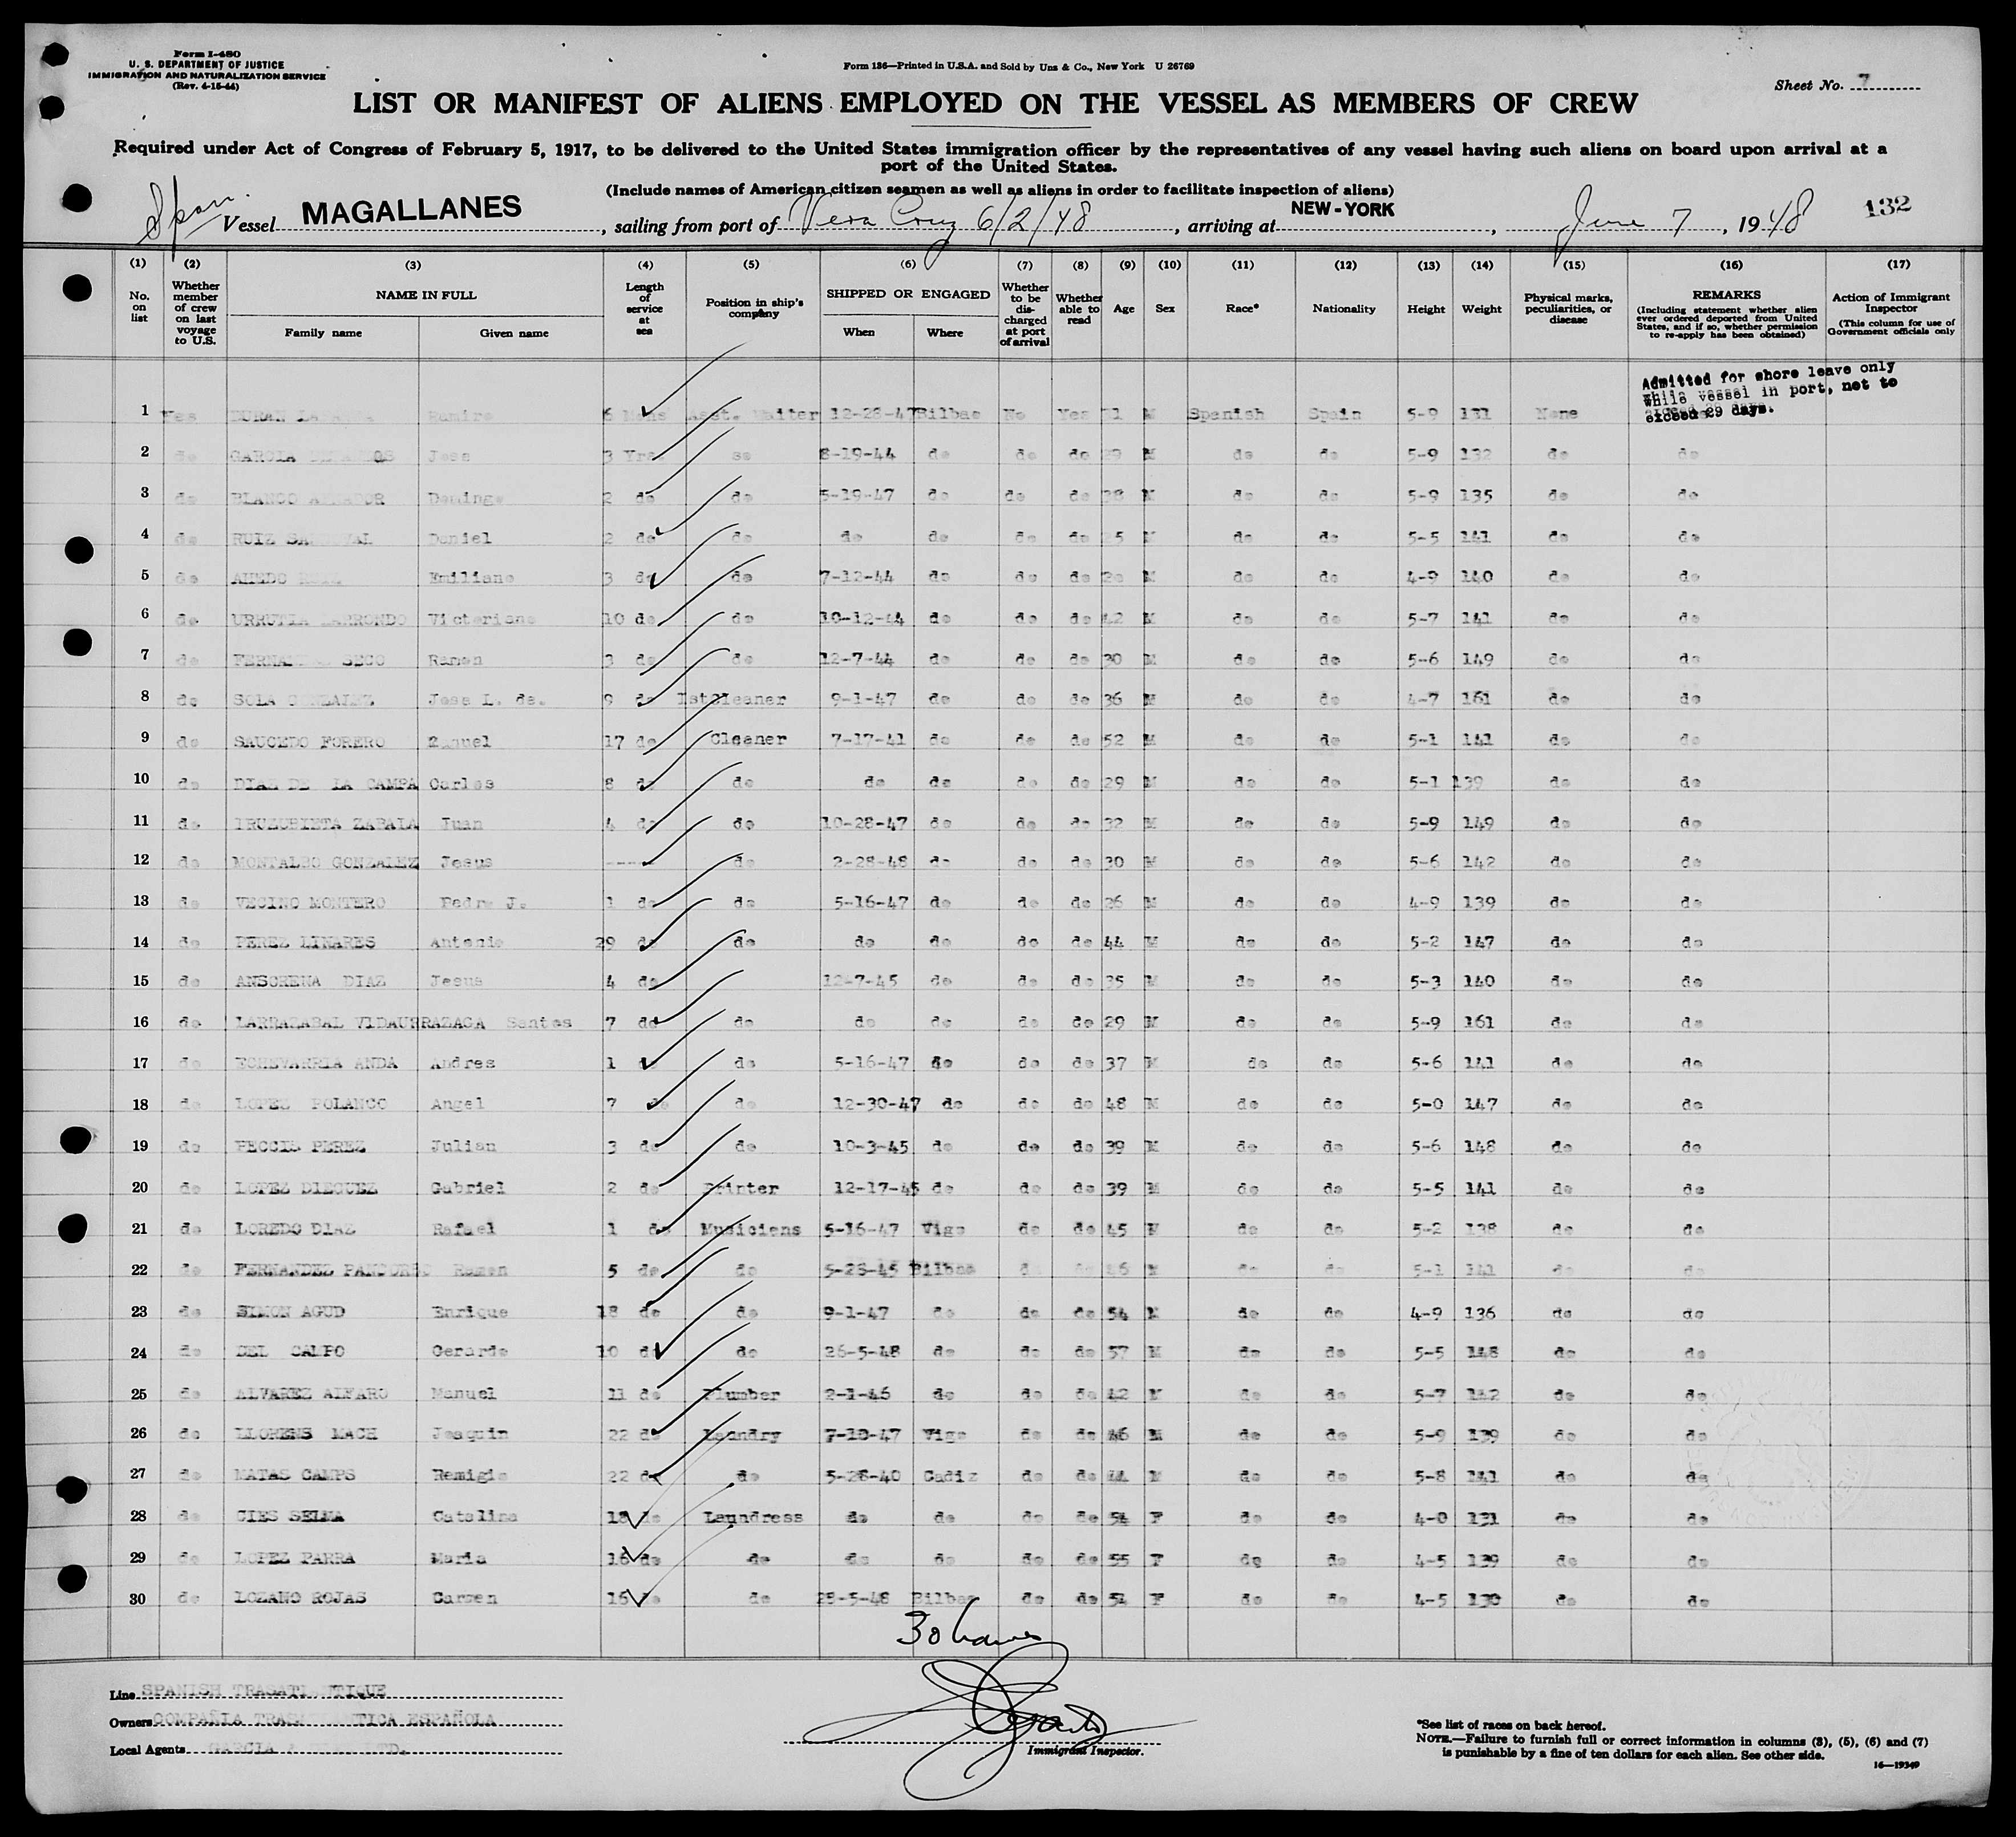 Form I-480
U. S. DEPARTMENT OF JUSTICE
IMMIGRATION AND NATURALIZATION SERVICE
(Rev. 4-15-44)
Form 136—Printed in U.S.A. and Sold by Unz & Co., New York U 26769
Sheet No. 7
LIST OR MANIFEST OF ALIENS EMPLOYED ON THE VESSEL AS MEMBERS OF CREW
Required under Act of Congress of February 5, 1917, to be delivered to the United States immigration officer by the representatives of any vessel having such aliens on board upon arrival at a
port of the United States.
(Include names of American citizen seamen as well as aliens in order to facilitate inspection of aliens)
Span. Vessel MAGALLANES, sailing from port of Vera Cruz 6/2/48, arriving at NEW-YORK, June 7, 1948 132
(1) (2) (3) (4) (5) (6) (7) (8) (9) (10) (11) (12) (13) (14) (15) (16) (17)
No. on list Whether member of crew on last voyage to U.S. NAME IN FULL Family name Given name Length of service at sea Position in ship's company SHIPPED OR ENGAGED When Where Whether to be discharged at port of arrival Whether able to read Age Sex Race* Nationality Height Weight Physical marks, peculiarities, or disease REMARKS (Including statement whether alien ever ordered deported from United States, and if so, whether permission to re-apply has been obtained) Action of Immigrant Inspector (This column for use of Government officials only
Admitted for shore leave only
while vessel in port, not to
exceed 29 days.
1 Yes DURAN Ramiro 6 Asst. Waiter 12-28-47 Bilbao No Yes M Spanish Spain 5-9 131 None
2 do GARCIA Jose 3 Yrs so 8-19-44 do do do 29 M do do 5-9 132 do do
3 do BLANCO Domingo 2 do do 5-19-47 do do do 38 M do do 5-9 135 do do
4 do RUIZ Daniel 2 do do do do do do M do do 5-5 141 do do
5 do AHEDO Emiliano 3 do do 7-12-44 do do do M do do 4-9 140 do do
6 do URRUTIA LARRONDO Victoriano 10 do do 10-12-44 do do do 42 M do do 5-7 141 do do
7 do SECO Ramon 3 do do 12-7-44 do do do 30 M do do 5-6 149 do do
8 do SOLA GONZALEZ Jose L. de. 9 do 1st Cleaner 9-1-47 do do do 36 M do do 4-7 161 do do
9 do SAUCEDO FORERO 17 do Cleaner 7-17-41 do do do 52 M do do 5-1 141 do do
10 do DIAZ DE LA CAMPA Carlos 8 do do do do do do 29 M do do 5-1 139 do do
11 do IRUZUBIETA ZABALA Juan 4 do do 10-28-47 do do do 32 M do do 5-9 149 do do
12 do MONTALBO GONZALEZ Jesus ---- do 2-28-48 do do do 30 M do do 5-6 142 do do
13 do VECINO MONTERO Pedro J. 1 do do 5-16-47 do do do 26 M do do 4-9 139 do do
14 do PEREZ LINARES Antonio 29 do do do do do do 44 M do do 5-2 147 do do
15 do ANSORENA DIAZ Jesus 4 do 12-7-45 do do do 35 M do do 5-3 140 do do
16 do LARRAZABAL VIDAURRAZAGA Santos 7 do do do do do do 29 M do do 5-9 161 do do
17 do ECHEVARRIA ANDA Andres 1 do do 5-16-47 do do do 37 M do do 5-6 141 do do
18 do LOPEZ POLANCO Angel 7 do do 12-30-47 do do do 48 M do do 5-0 147 do do
19 do PEREZ Julian 3 do do 10-3-45 do do do 39 M do do 5-6 148 do do
20 do LOPEZ DIEGUEZ Gabriel 2 do Printer 12-17-45 do do do 39 M do do 5-5 141 do do
21 do LOREDO DIAZ Rafael 1 do Musiciens 5-16-47 Vigo do do 45 M do do 5-2 138 do do
22 do FERNANDEZ Ramon 5 do do 5-28-45 Bilbao do do 46 M do do 5-1 141 do do
23 do SIMON AGUD Enrique 18 do do 9-1-47 do do do 54 M do do 4-9 136 do do
24 do DEL CAMPO Gerardo 10 do do 26-5-48 do do do 57 M do do 5-5 148 do do
25 do ALVAREZ ALFARO Manuel 11 do Plumber 2-1-46 do do do 42 M do do 5-7 142 do do
26 do LLORENS MACH Joaquin 22 do Laundry 7-10-47 Vigo do do 46 M do do 5-9 139 do do
27 do MATAS CAMPS Remigio 22 do do 5-28-40 Cadiz do do 44 M do do 5-8 141 do do
28 do CIES SELMA Catalina 18 do Laundress do do do do 54 F do do 4-0 131 do do
29 do LOPEZ PARRA Maria 16 do do do do do do 55 F do do 4-5 139 do do
30 do LOZANO ROJAS Carmen 16 do do 28-5-48 Bilbao do do 51 F do do 4-5 130 do do
30 names
Line SPANISH TRASATLANTIQUE
Owners COMPAÑIA TRASATLANTICA ESPAÑOLA
Local Agents GARCIA LTD.
Immigrant Inspector.
*See list of races on back hereof.
NOTE.—Failure to furnish full or correct information in columns (3), (5), (6) and (7)
is punishable by a fine of ten dollars for each alien. See other side.
16—19349